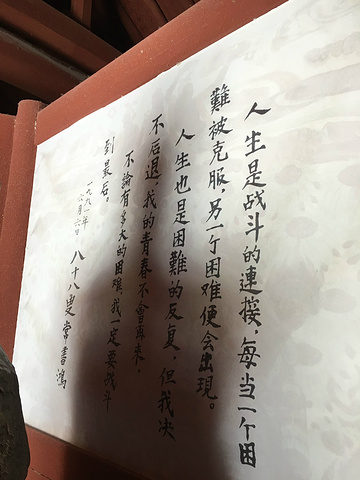 人生是战斗的連接，每当一个困
難被克服，另一个困难便会出現。
人生也是困難的反复，但我决
不后退，我的青春不會再来，
不論有多大的困难，我一定要战斗
到最后。
一九九一年
八十八叟常書鴻